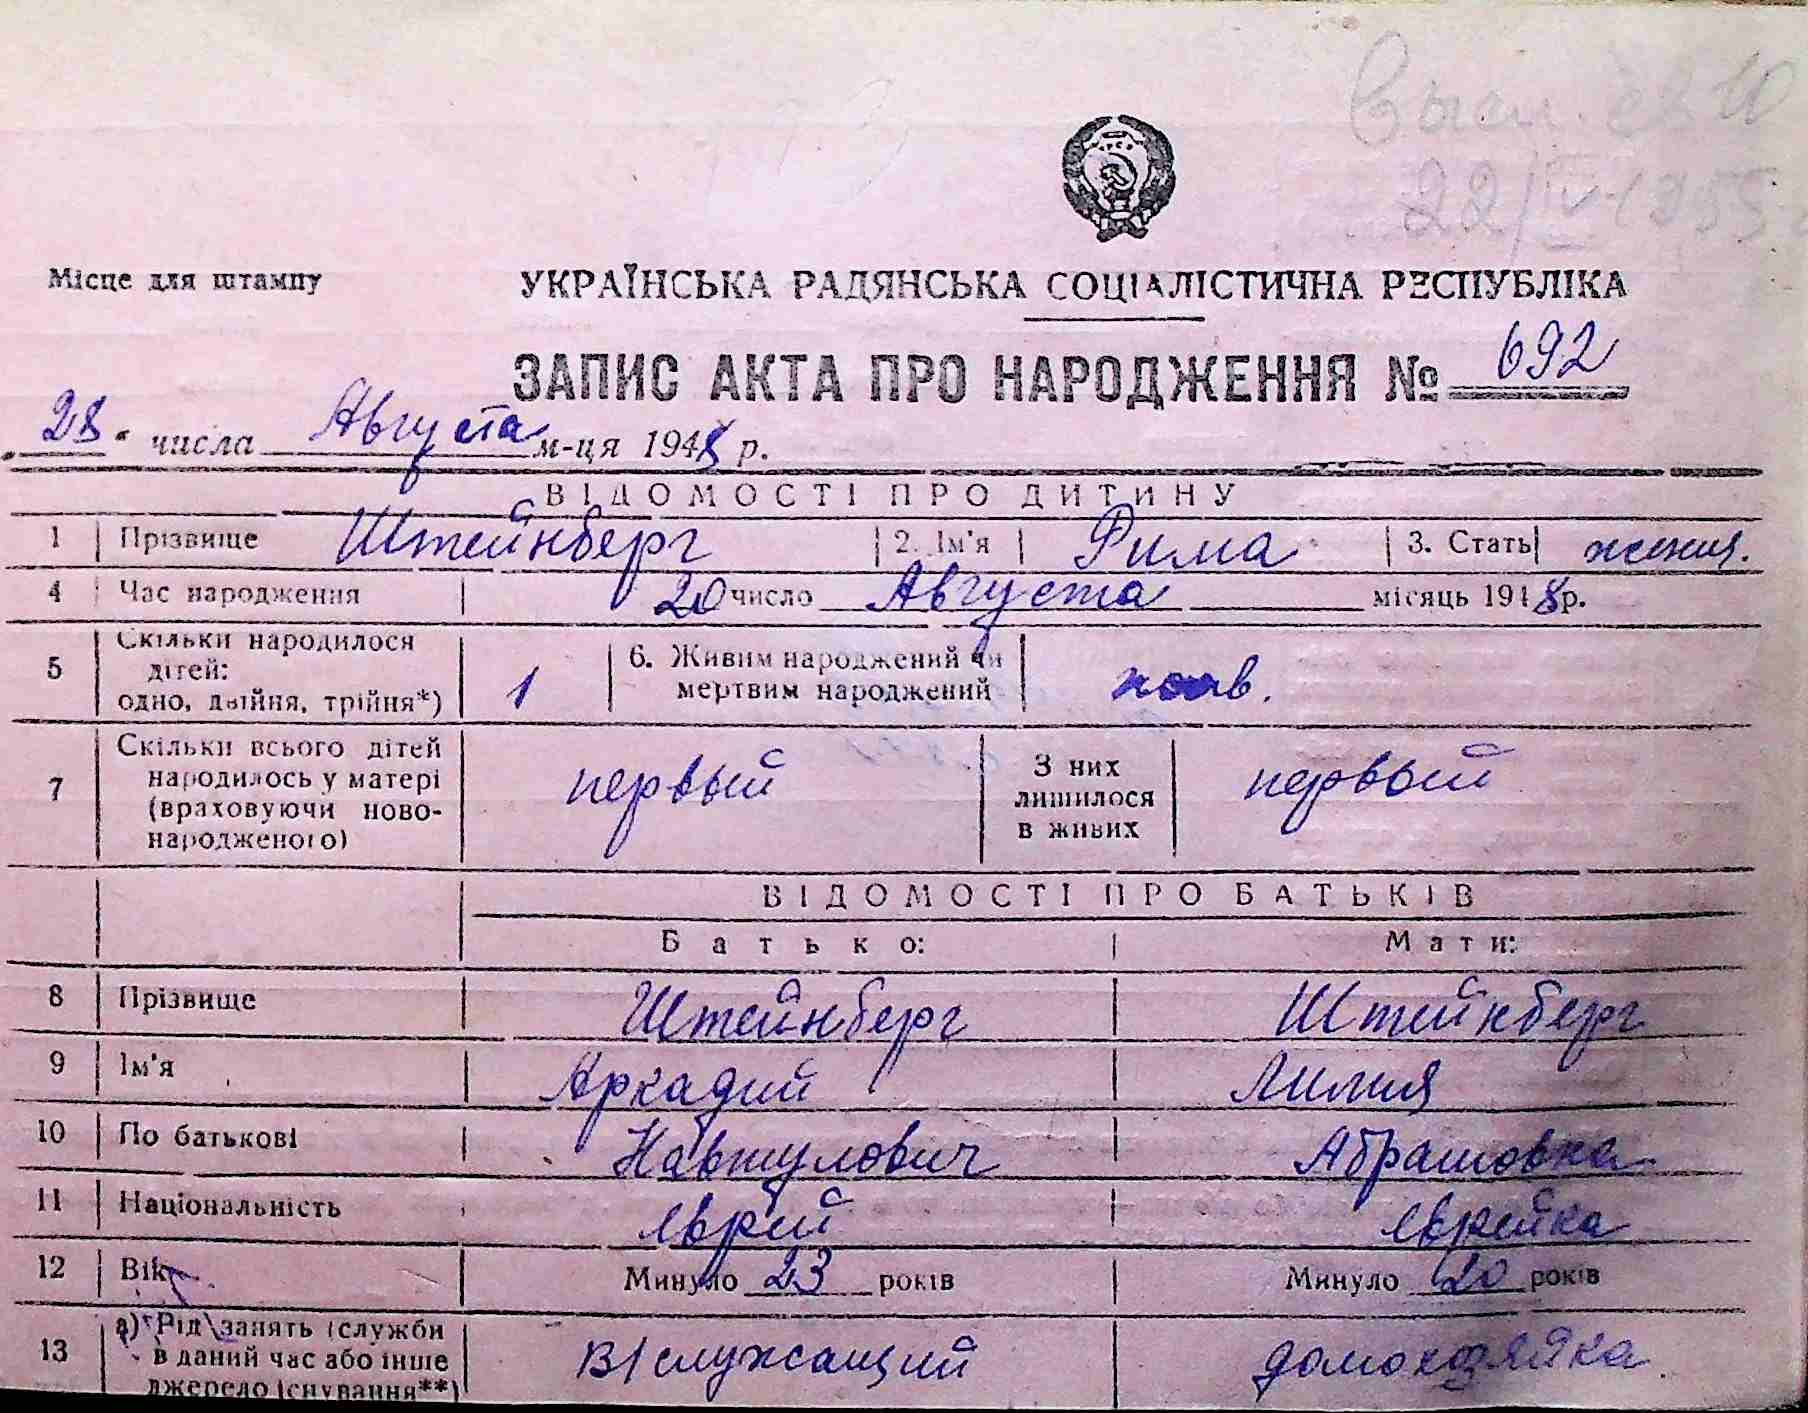 22/IV-1955 г
Місце для штампу
УКРАЇНСЬКА РАДЯНСЬКА СОЦІАЛІСТИЧНА РЕСПУБЛІКА
ЗАПИС АКТА ПРО НАРОДЖЕННЯ № 692
28 числа Августа м-ця 1948 р.
ВІДОМОСТІ ПРО ДИТИНУ
1 Прізвище Штейнберг 2. Ім'я Рима 3. Стать женск.
4 Час народження 20 число Августа місяць 1948 р.
5 Скільки народилося дітей: одно, двійня, трійня*) 1 6. Живим народжений чи мертвим народжений
7 Скільки всього дітей народилось у матері (враховуючи ново-народженого) первый З них лишилося в живих первый
ВІДОМОСТІ ПРО БАТЬКІВ
Батько: Мати:
8 Прізвище Штейнберг Штейнберг
9 Ім'я Аркадий Лилия
10 По батькові Навтулович Абрамовна
11 Національність еврей еврейка
12 Вік Минуло 23 років Минуло 20 років
13 а) Рід занять (служби в даний час або інше джерело існування**) в/служащий домохозяйка